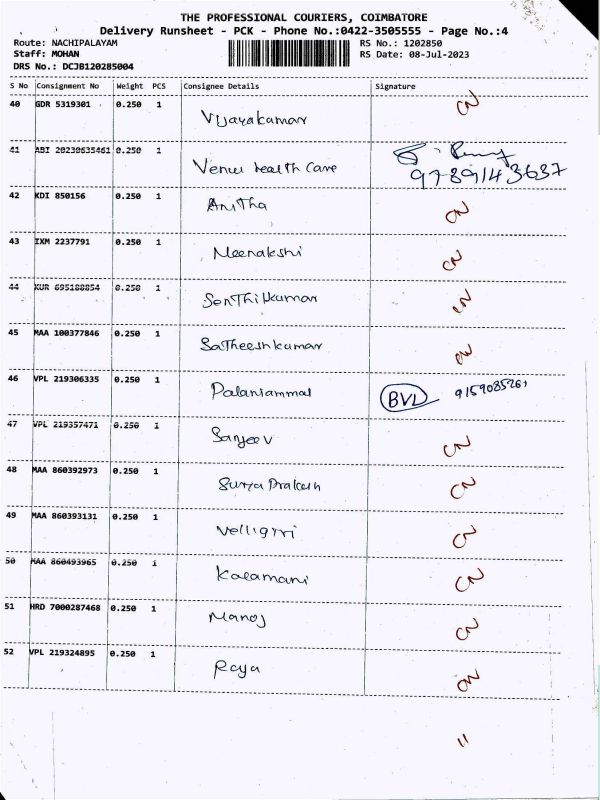 THE PROFESSIONAL COURIERS, COIMBATORE
Delivery Runsheet - PCK - Phone No.:0422-3505555 - Page No.:4
Route: NACHIPALAYAM RS No.: 1202850
Staff: MOHAN RS Date: 08-Jul-2023
DRS No.: DCJB120285004
S No Consignment No Weight PCS Consignee Details Signature
40 GDR 5319301 0.250 1 Vijayakumar CN
41 ABI 20230635461 0.250 1 Venus health Care
9789143637
42 KDI 850156 0.250 1 Anitha CN
43 IXM 2237791 0.250 1 Meenakshi CN
44 KUR 695188854 0.250 1 Senthilkumar CN
45 MAA 100377846 0.250 1 Satheeshkumar CN
46 VPL 219306335 0.250 1 Palaniammal BVL 9159085261
47 VPL 219357471 0.250 1 Sanjeev CN
48 MAA 860392973 0.250 1 Surya Prakash CN
49 MAA 860393131 0.250 1 Velligiri CN
50 MAA 860493965 0.250 1 Kalamani CN
51 HRD 7000287468 0.250 1 Manoj CN
52 VPL 219324895 0.250 1 Raya CN
11